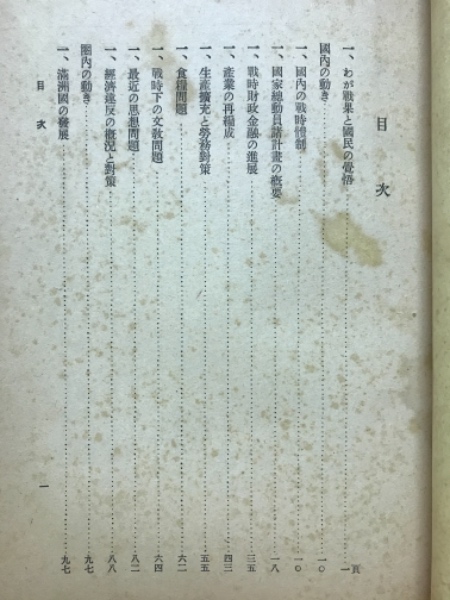 目次
一、わが戰果と國民の覺悟……一頁
國內の動き……一〇
一、國內の戰時體制……一〇
一、國家總動員諸計畫の槪要……一八
一、戰時財政金融の進展……三五
一、產業の再編成……四三
一、生產擴充と勞務對策……五五
一、食糧問題……六二
一、戰時下の文敎問題……六四
一、最近の思想問題……八二
一、經濟違反の槪況と對策……八八
圈內の動き……九七
一、滿洲國の發展……九七
目次
一